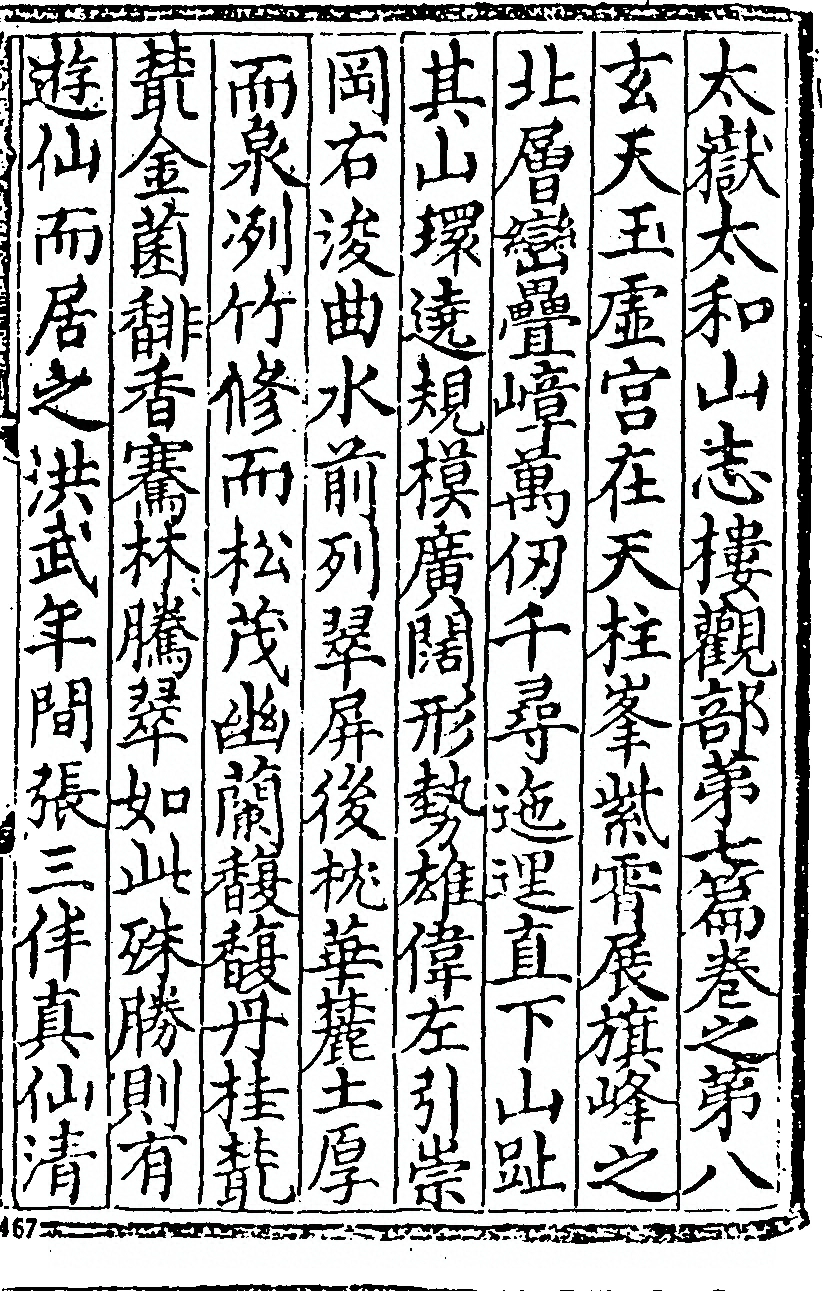 太嶽太和山志樓觀部第七篇卷之第八
玄天玉虛宮在天柱峯紫霄展旗峰之
北層巒疊嶂萬仞千尋迤邐直下山趾
其山環遶規模廣闊形勢雄偉左引崇
岡右浚曲水前列翠屏後枕華麓土厚
而泉冽竹修而松茂幽蘭馥馥丹桂
金菌馡香騫林騰翠如此殊勝則有
遊仙而居之洪武年間張三仹真仙清
467